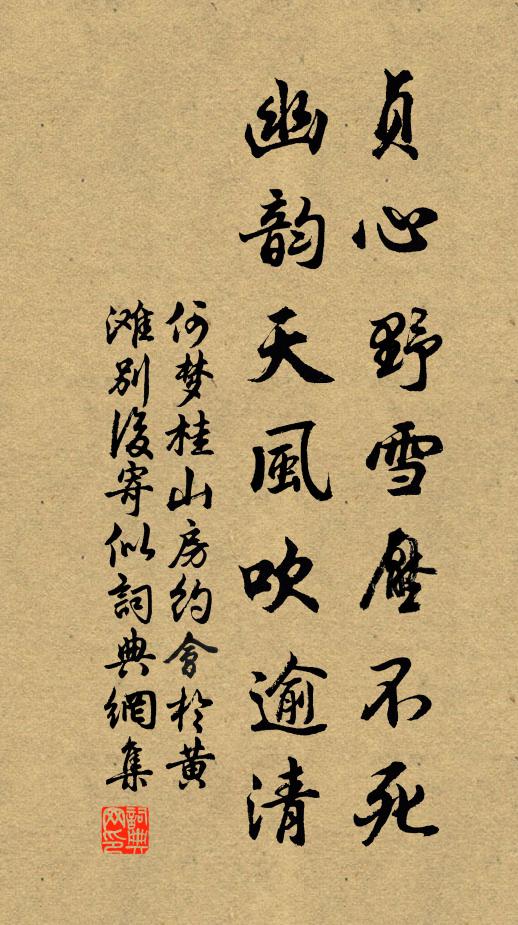 貞心野雪壓不死
幽韵天風吹逾清
何梦桂山房約會於黄
滩别後寄似詞典網集
詞典网印